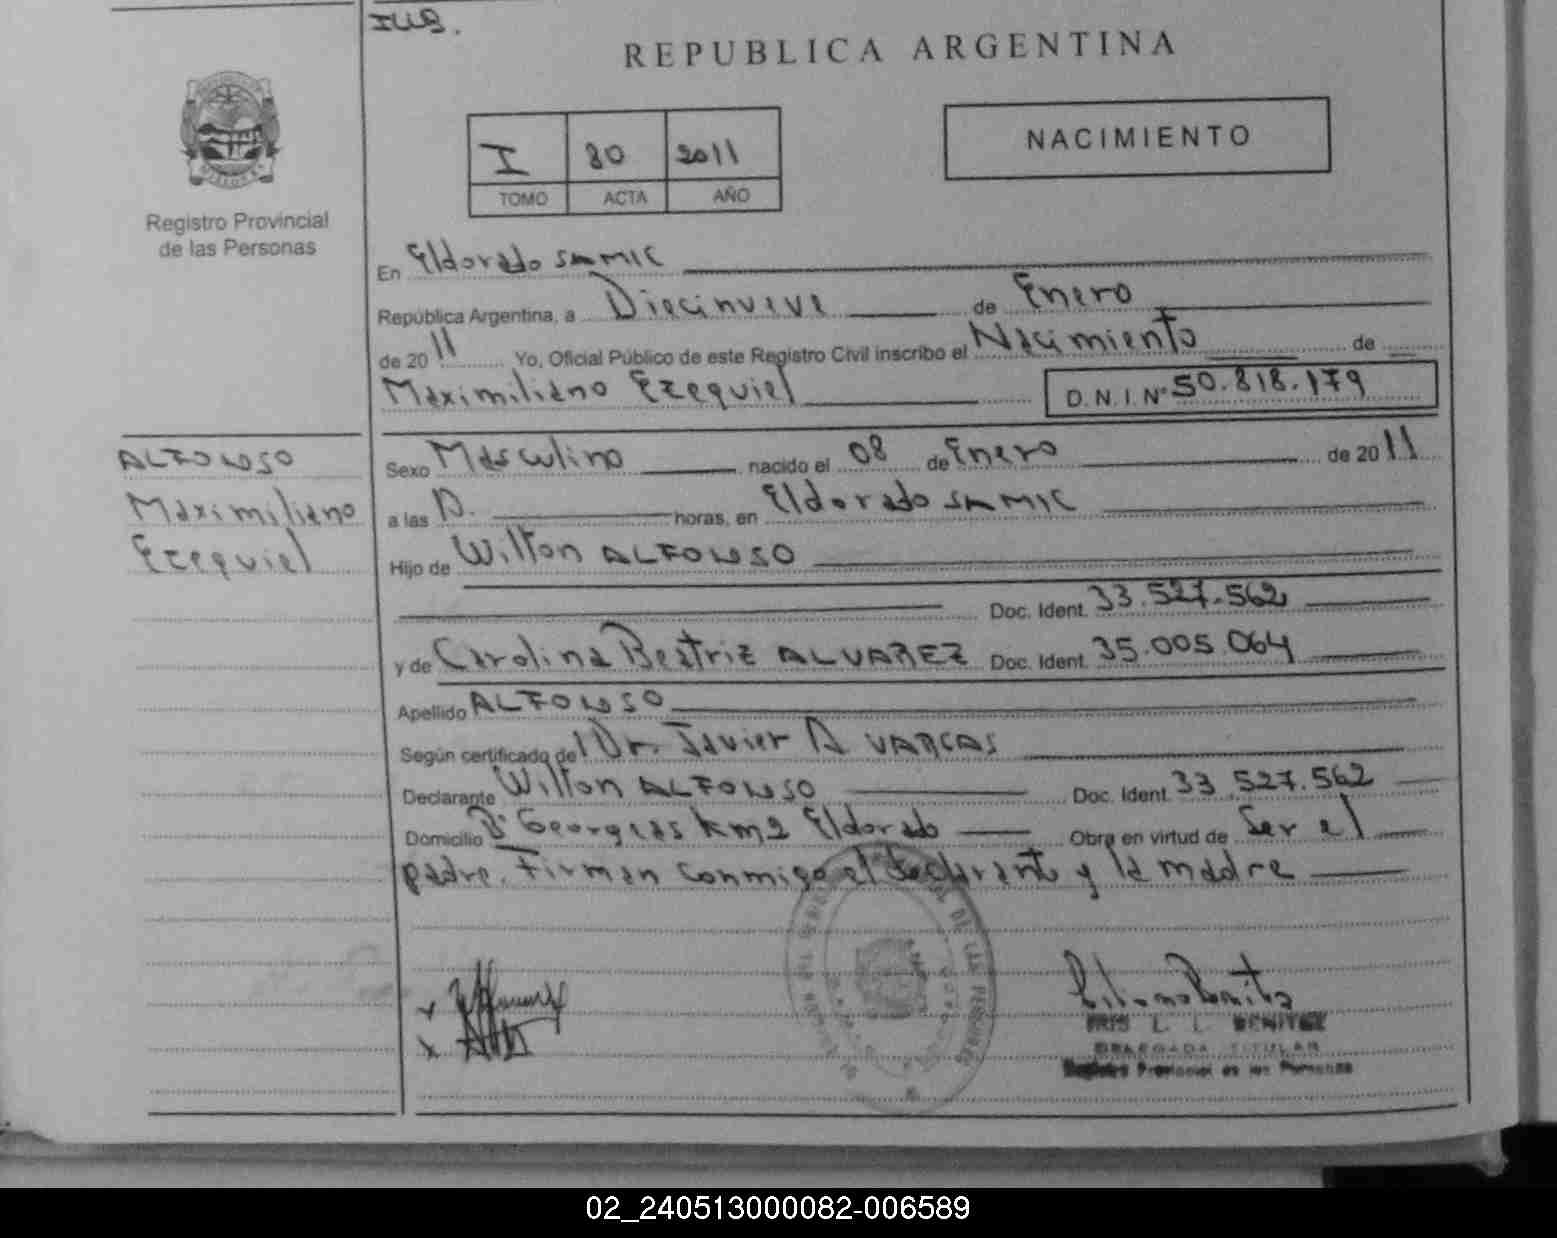 REPUBLICA ARGENTINA
I 80 2011
TOMO ACTA AÑO
NACIMIENTO
Registro Provincial
de las Personas
En Eldorado SAMIC
República Argentina, a Diecinueve de Enero
de 2011 Yo, Oficial Público de este Registro Civil inscribo el Nacimiento de
Maximiliano Ezequiel D.N.I. Nº 50.818.179
ALFONSO
Maximiliano
Ezequiel
Sexo Masculino nacido el 08 de Enero de 2011
a las horas, en Eldorado SAMIC
Hijo de Wilton ALFONSO
Doc. Ident. 33.527.562
y de Carolina Beatriz ALVAREZ Doc. Ident. 35.005.064
Apellido ALFONSO
Según certificado del Dr. Javier A VARGAS
Declarante Wilton ALFONSO Doc. Ident. 33.527.562
Domicilio Bº Georgias Km2 Eldorado Obra en virtud de Ser el
padre. Firman conmigo el declarante y la madre
IRIS L. L. BENITEZ
DELEGADA TITULAR
Registro Provincial de las Personas
02_240513000082-006589